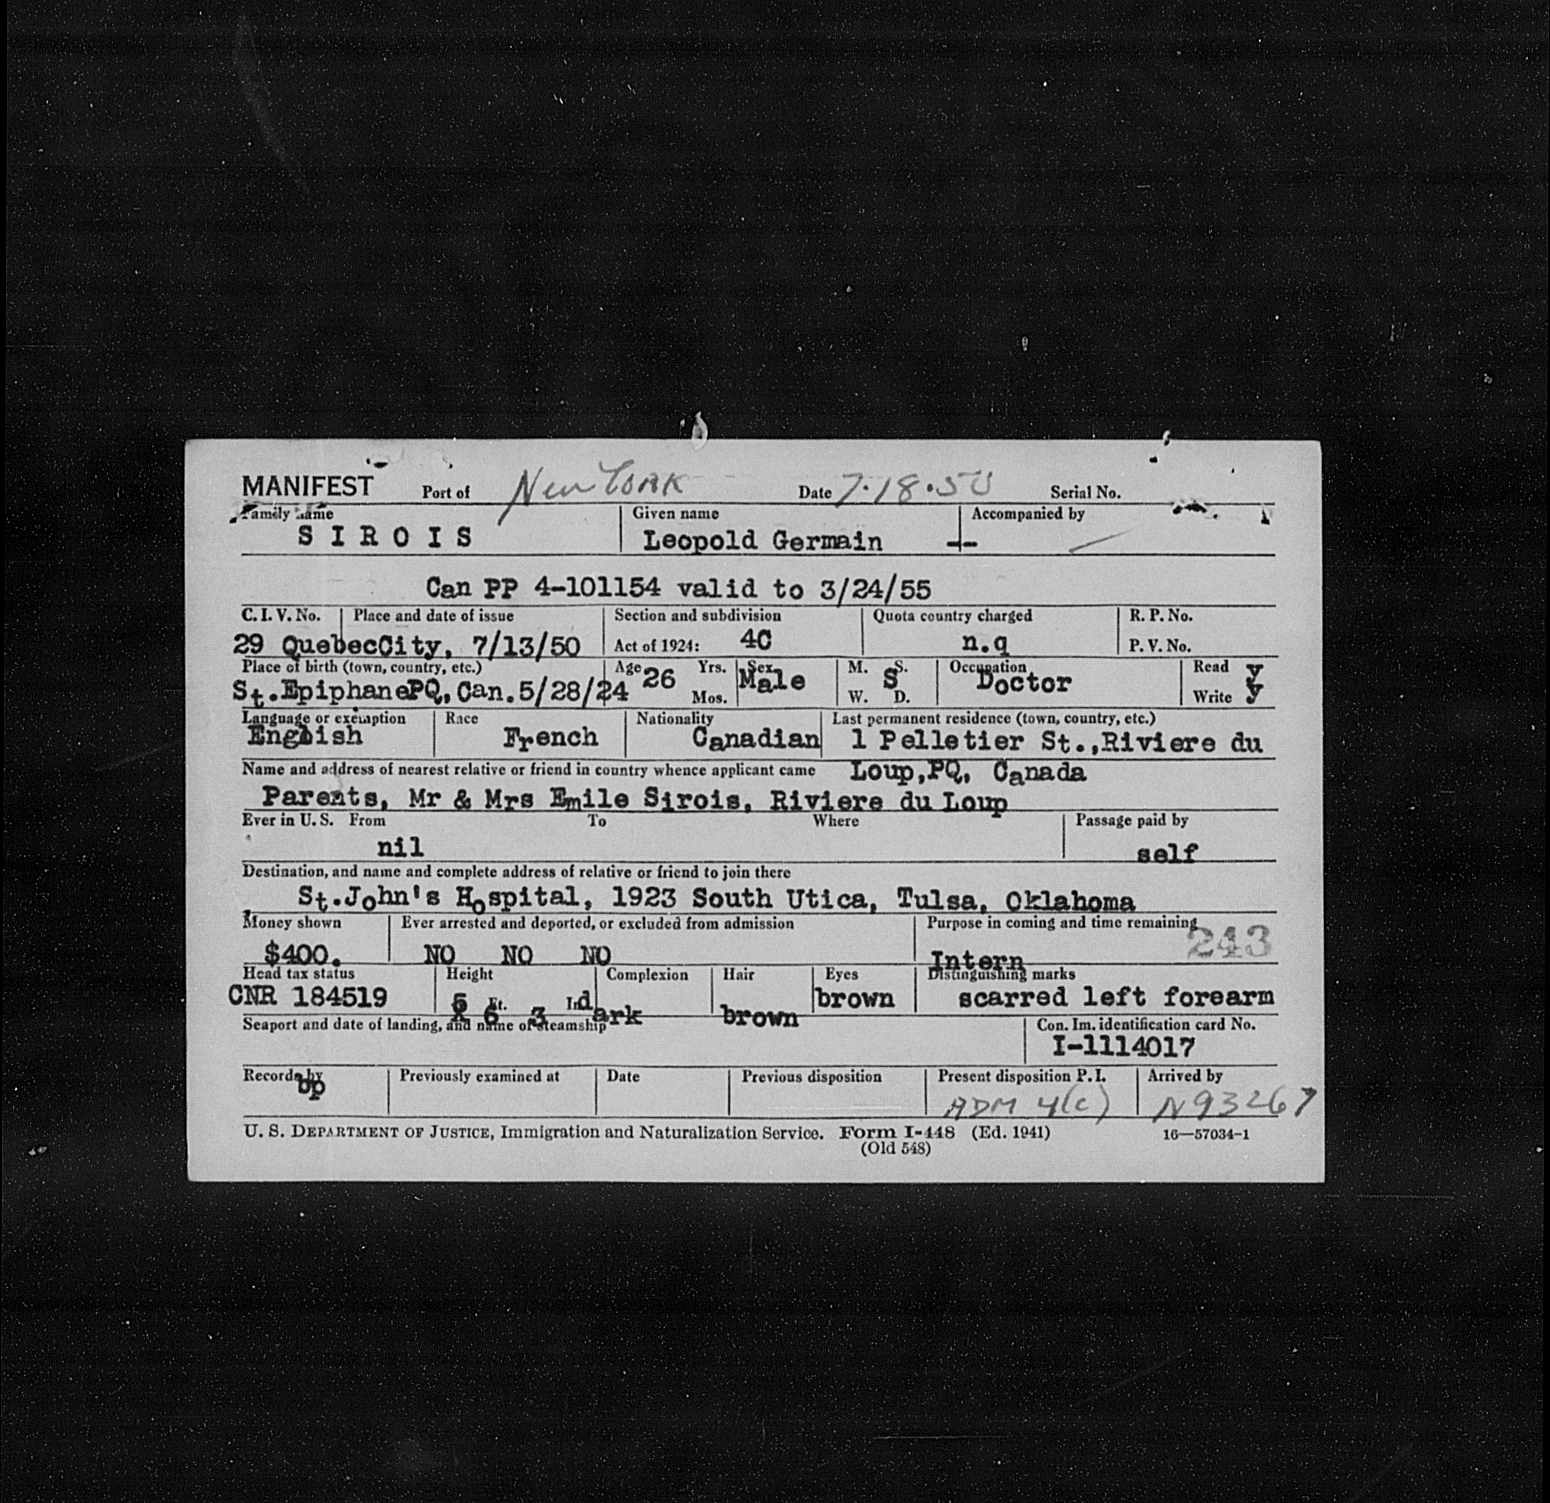 MANIFEST Port of New York Date 7-18-50 Serial No.
Family name Given name Accompanied by
S I R O I S Leopold Germain —
Can PP 4-101154 valid to 3/24/55
C. I. V. No. Place and date of issue Section and subdivision Quota country charged R. P. No.
29 QuebecCity, 7/13/50 Act of 1924: 4C n.q P. V. No.
Place of birth (town, country, etc.) Age 26 Yrs. Sex M. S. Occupation Read y
St.EpiphanePQ,Can.5/28/24 Mos. Male W. S D. Doctor Write y
Language or exemption Race Nationality Last permanent residence (town, country, etc.)
English French Canadian 1 Pelletier St.,Riviere du
Name and address of nearest relative or friend in country whence applicant came Loup,PQ, Canada
Parents, Mr & Mrs Emile Sirois, Riviere du Loup
Ever in U. S. From To Where Passage paid by
nil self
Destination, and name and complete address of relative or friend to join there
St.John's Hospital, 1923 South Utica, Tulsa, Oklahoma
Money shown Ever arrested and deported, or excluded from admission Purpose in coming and time remaining
$400. NO NO NO Intern 243
Head tax status Height Complexion Hair Eyes Distinguishing marks
CNR 184519 5 Ft. 3 In. dark brown brown scarred left forearm
Seaport and date of landing, and name of steamship Con. Im. identification card No.
I-1114017
Record by Previously examined at Date Previous disposition Present disposition P. I. Arrived by
up ADM 4(c) N93267
U. S. DEPARTMENT OF JUSTICE, Immigration and Naturalization Service. Form I-448 (Ed. 1941) 16—57034-1
(Old 548)